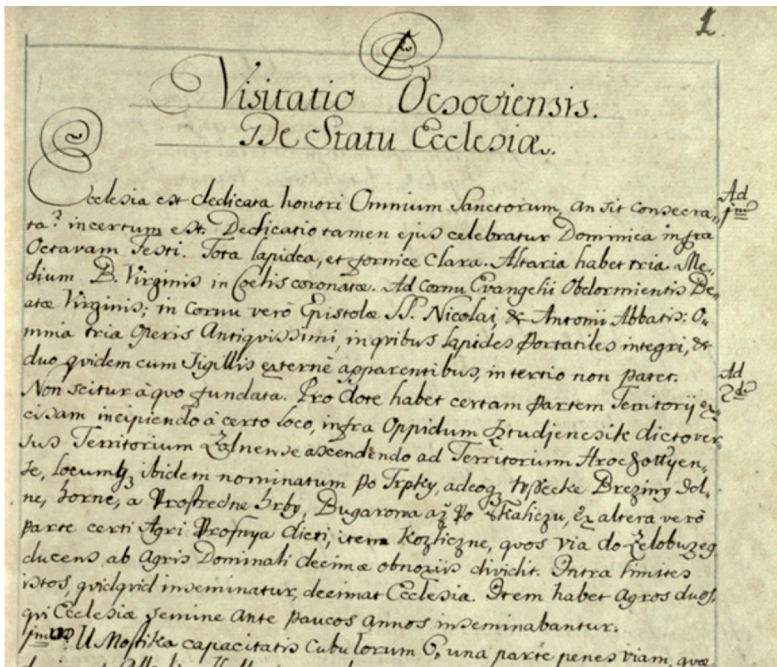 1
Visitatio Ocsoviensis.
De Statu Ecclesiæ.
Ecclesia est dedicata honori Omnium Sanctorum, an sit consecra-
ta? incertum est. Dedicatio tamen ejus celebratur Dominica infra
Octavam Festi. Tota lapidea, et fornice clara. Altaria habet tria. Me-
dium B. Virginis in Coelis coronatæ. Ad Cornu Evangelii Obdormientis Be-
atæ Virginis; in Cornu verò Epistolæ SS. Nicolai, & Antonii Abbatis: O-
mnia tria Operis Antiquissimi, in quibus lapides portatiles integri, &
duo quidem cum Sigillis externè apparentibus, in tertio non patet.
Non scitur à quo fundata. Pro dote habet certam partem Territorij ex-
cisam incipiendo à certo loco, infra Oppidum Sztudjenesite dicto ver-
sus Territorium Zolnense ascendendo ad Territorium Hrochottyen-
se, locumq; ibidem nominatum po Trpky, adeoq; vssecke Breziny dol-
ne, horne, a Prostredne hrby, Bugarowa až po Skaliczu, Ex altera verò
parte certi Agri Profnya dicti, item Kozliczne, quos via do Zelobuzeg
ducens ab Agris Dominali decimæ obnoxiis dividit. Intra limites
istos, quidquid inseminatur, decimat Ecclesia. Item habet Agros duos,
qui Ecclesiæ semine ante paucos annos inseminabantur.
U Mostika capacitatis Cubulorum 6, una parte penes viam, quæ
Ad
1mum
Ad
2dum